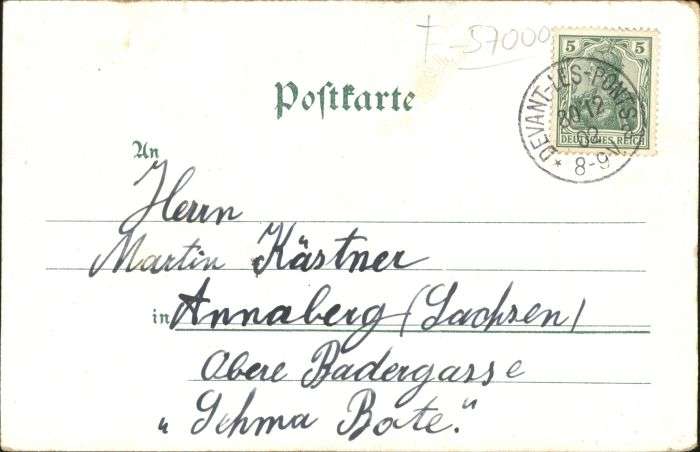 57000
5 5
DEUTSCHES REICH
* DEVANT-LES-PONTS *
30 12
02
8-9V
Postkarte
An
Herrn
Martin Kästner
in Annaberg (Sachsen)
Obere Badergasse
"Sehma Bote."